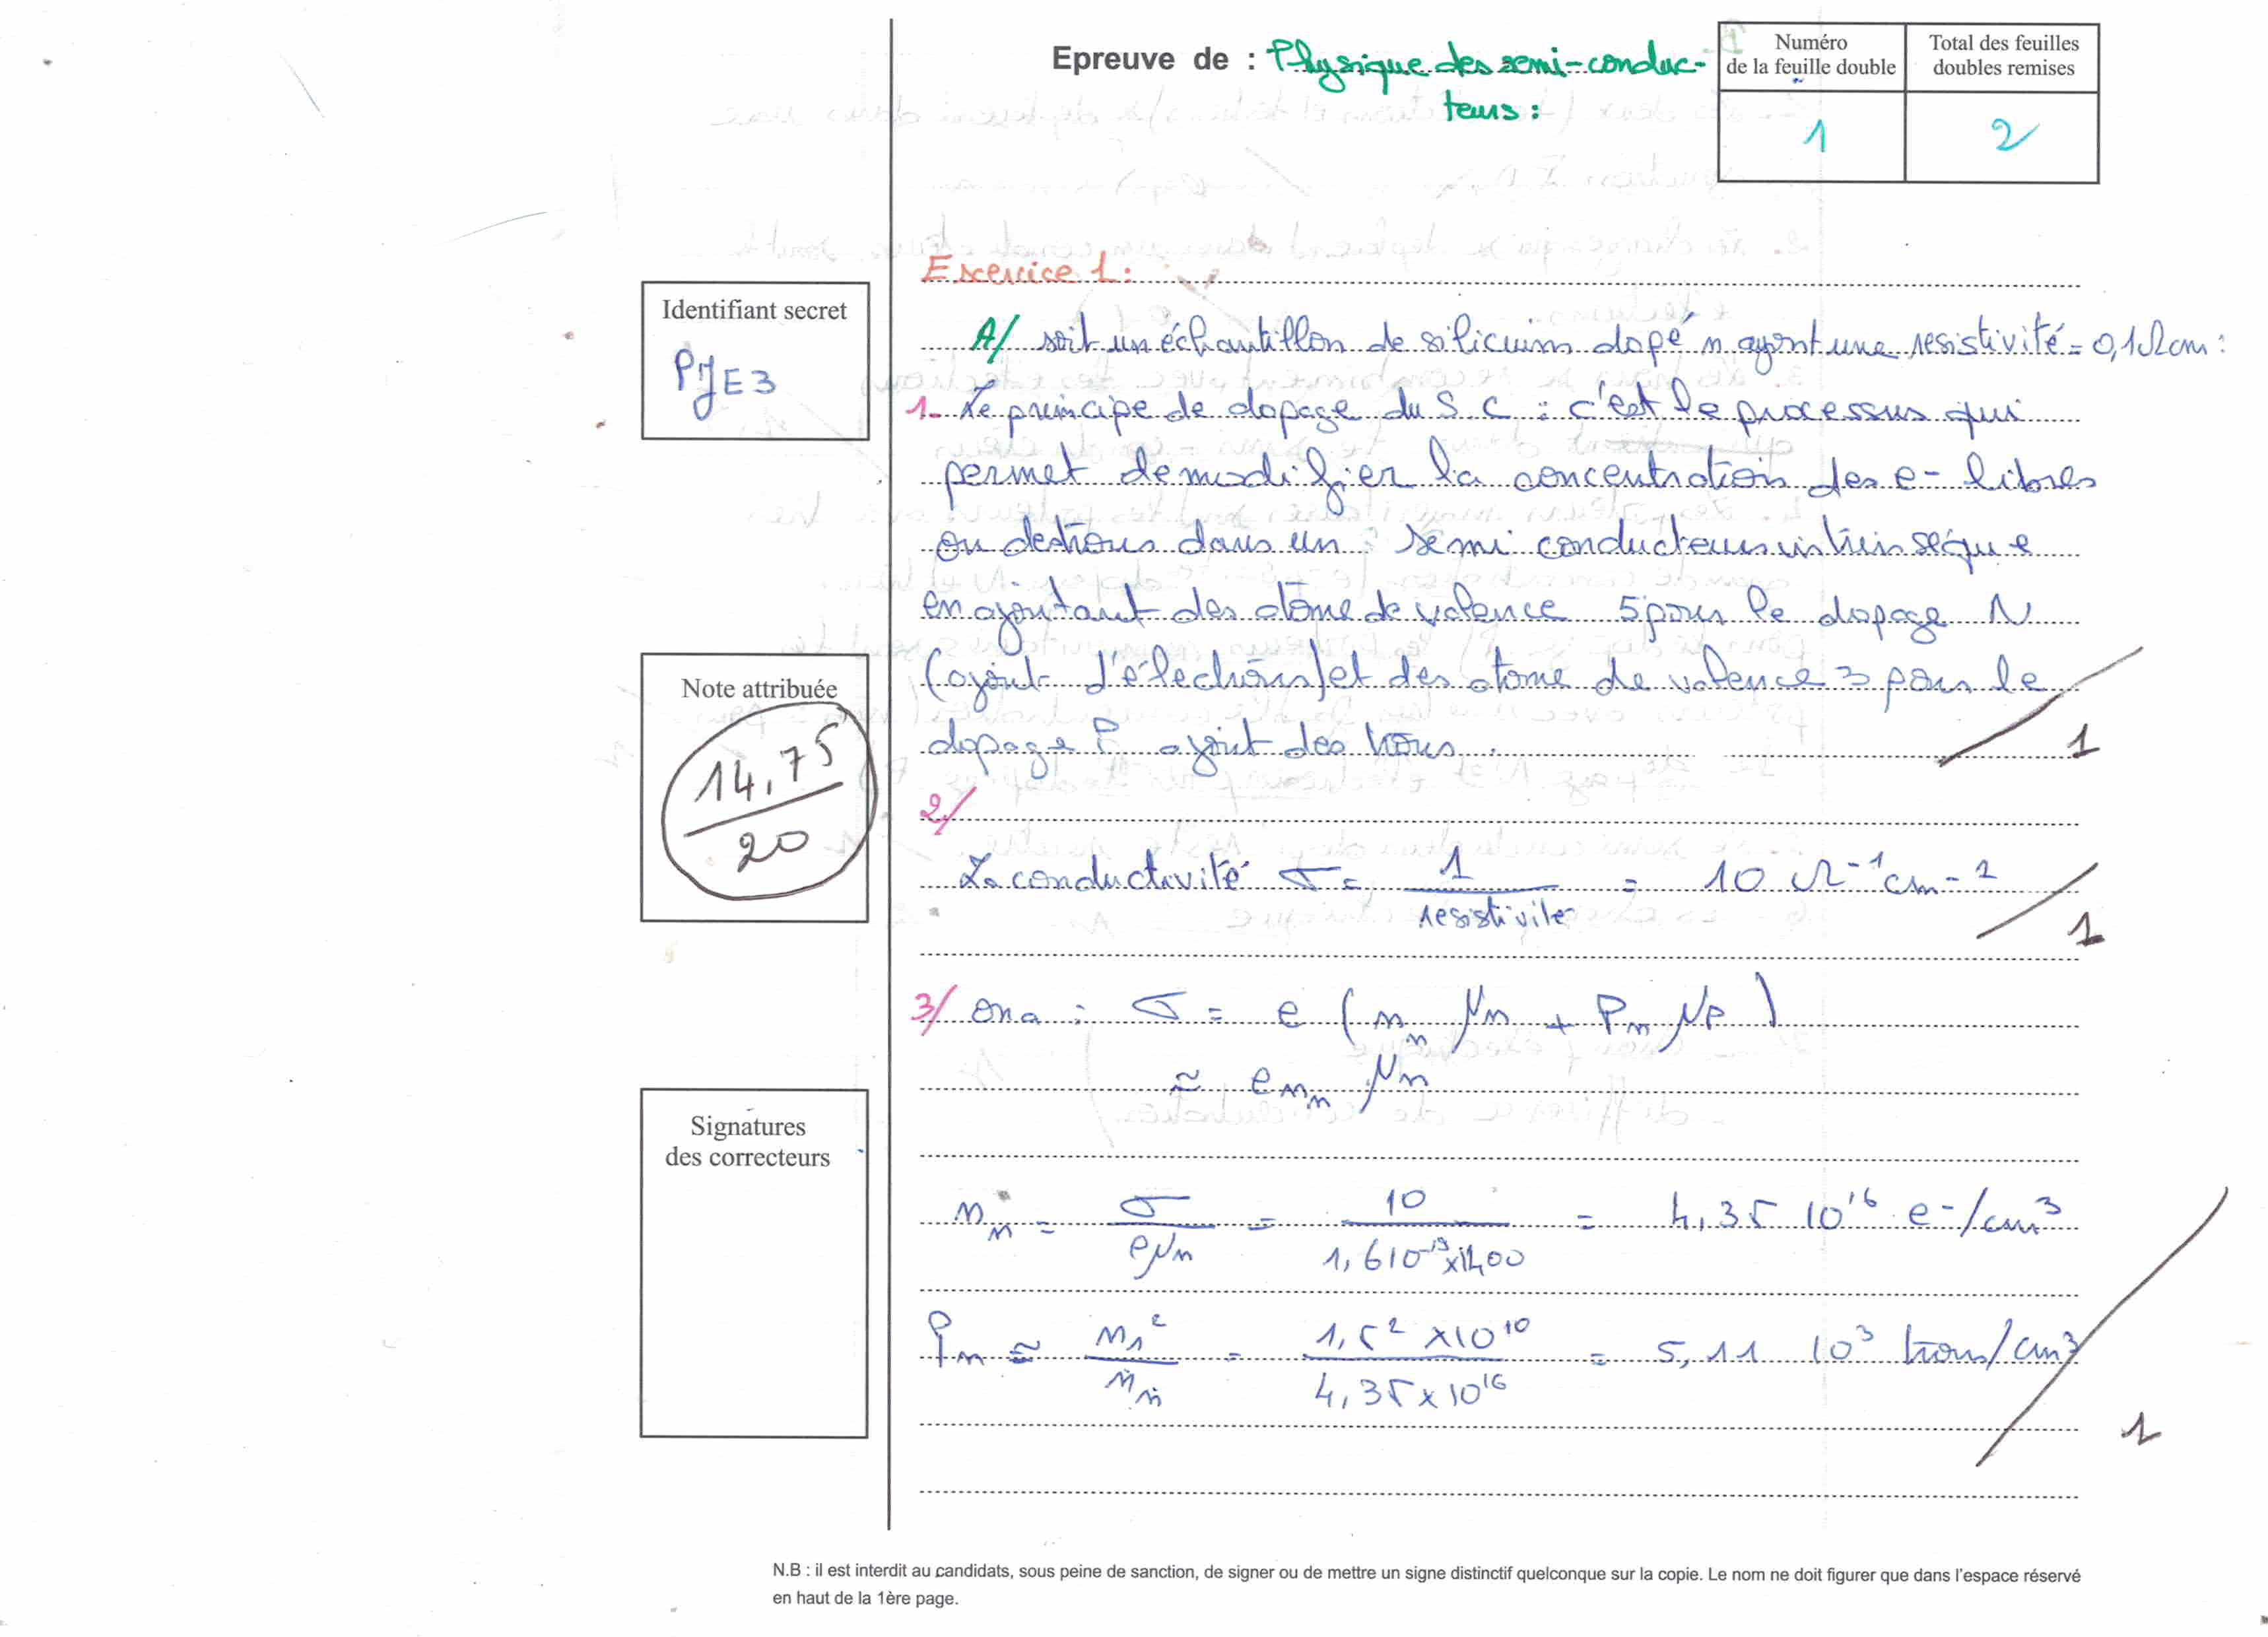 Epreuve de : Physique des semi-conduc-
teurs :
Numéro
de la feuille double
Total des feuilles
doubles remises
1
2
Identifiant secret
PJE3
Note attribuée
14,75
20
Signatures
des correcteurs
Exercice 1:
A/ soit un échantillon de silicium dopé n ayant une resistivité = 0,1Ωcm :
1- Le principe de dopage du S C : c'est le processus qui
permet de modifier la concentration des e- libres
ou des trous dans un semi conducteurs intrinsèque
en ajoutant des atome de valence 5 pour le dopage N
(ajout d'électrons) et des atome de valence 3 pour le
dopage P ajout des trous.
1
2/
La conductivité σ = 1 / resistivité = 10 Ω-1cm-1
1
3/ ona : σ = e ( n_n μn + P_n μP )
≈ e n_n μn
n_n = σ / e μn = 10 / 1,6 10^-19 x 1400 = 4,35 10^16 e-/cm^3
P_n ≃ n_i^2 / n_n = 1,5^2 x10^10 / 4,35 x 10^16 = 5,11 10^3 trous/cm^3
1
N.B : il est interdit au candidats, sous peine de sanction, de signer ou de mettre un signe distinctif quelconque sur la copie. Le nom ne doit figurer que dans l'espace réservé
en haut de la 1ère page.